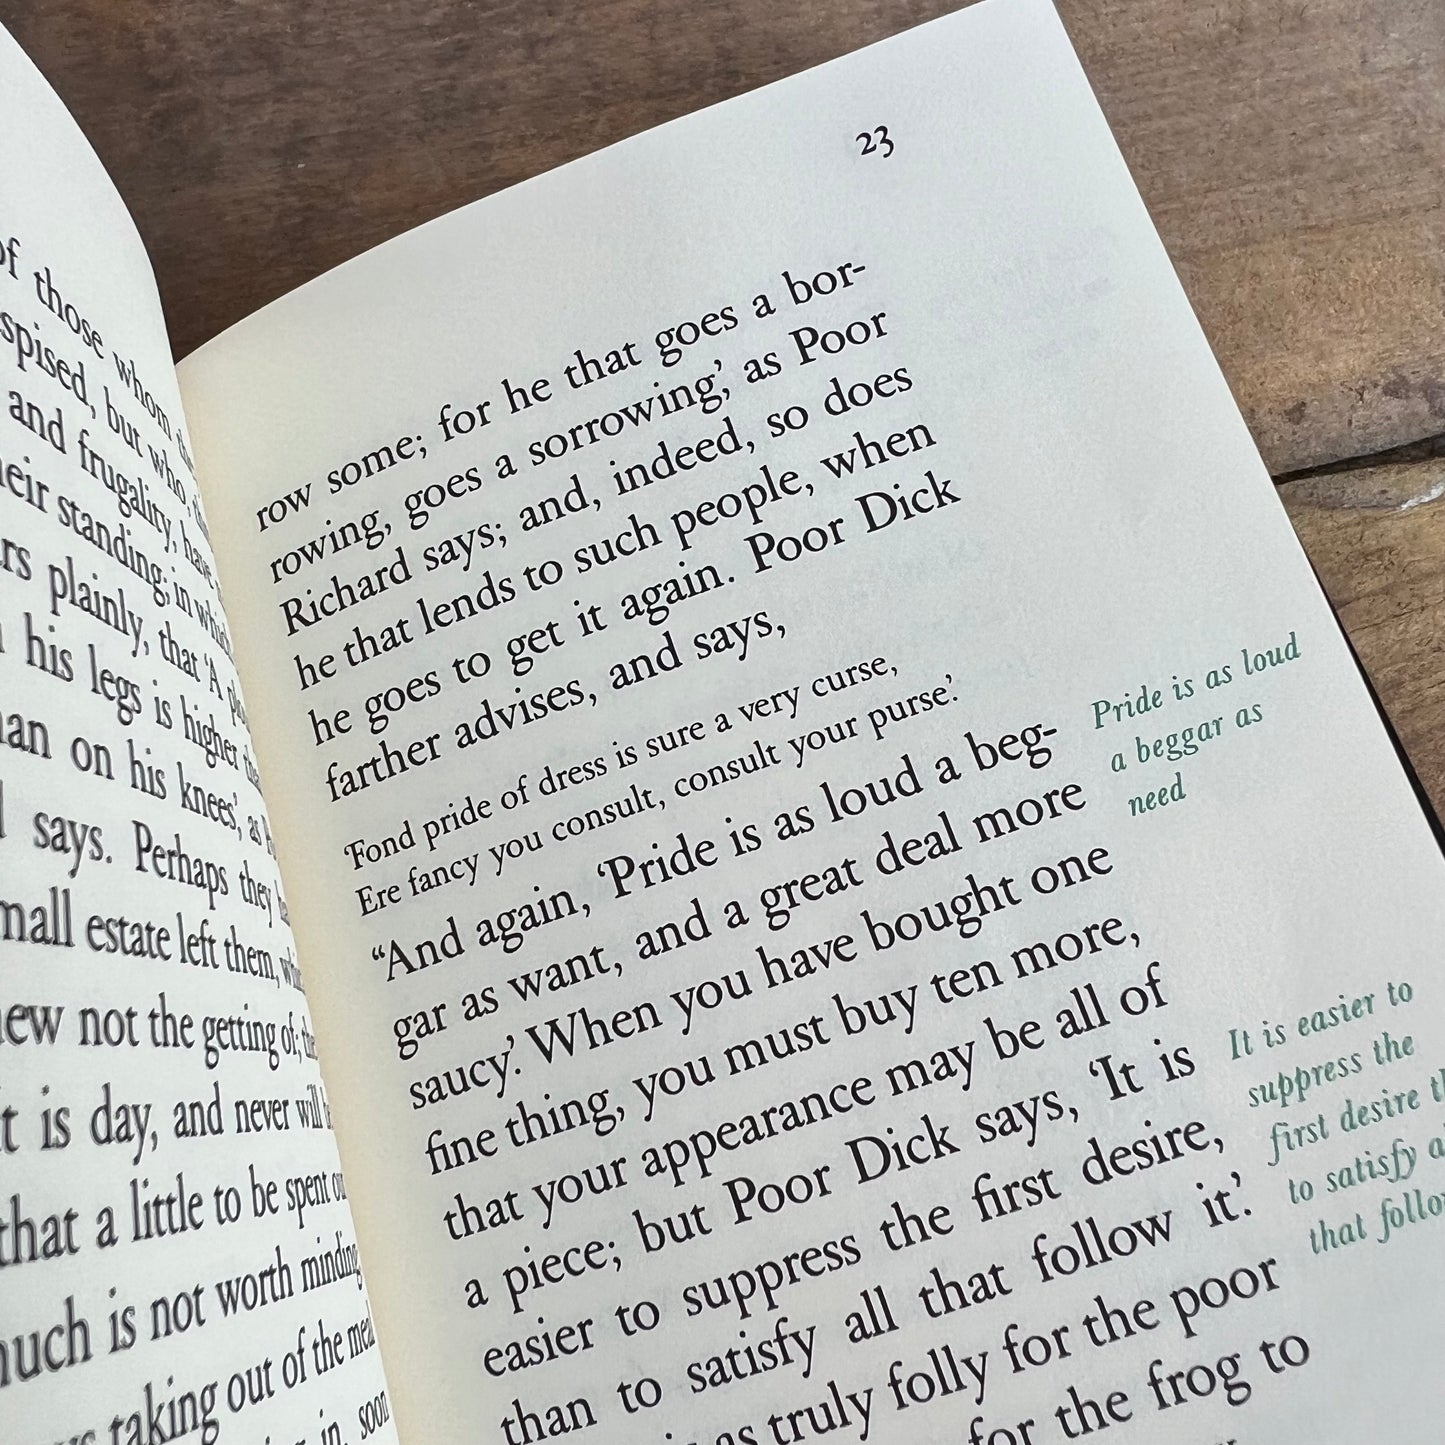 of those whom
spised, but who,
and frugality, have
their standing; in which
plainly, that 'A
his legs is higher
man on his knees', as
says. Perhaps they
small estate left them,
not the getting of;
is day, and never will
that a little to be spent
is not worth minding
taking out of the
in, soon
23
row some; for he that goes a bor-
rowing, goes a sorrowing', as Poor
Richard says; and, indeed, so does
he that lends to such people, when
he goes to get it again. Poor Dick
farther advises, and says,
'Fond pride of dress is sure a very curse,
Ere fancy you consult, consult your purse.'
"And again, 'Pride is as loud a beg-
gar as want, and a great deal more
saucy.' When you have bought one
fine thing, you must buy ten more,
that your appearance may be all of
a piece; but Poor Dick says, 'It is
easier to suppress the first desire,
than to satisfy all that follow it.'
as truly folly for the poor
for the frog to
Pride is as loud
a beggar as
need
It is easier to
suppress the
first desire
to satisfy
that